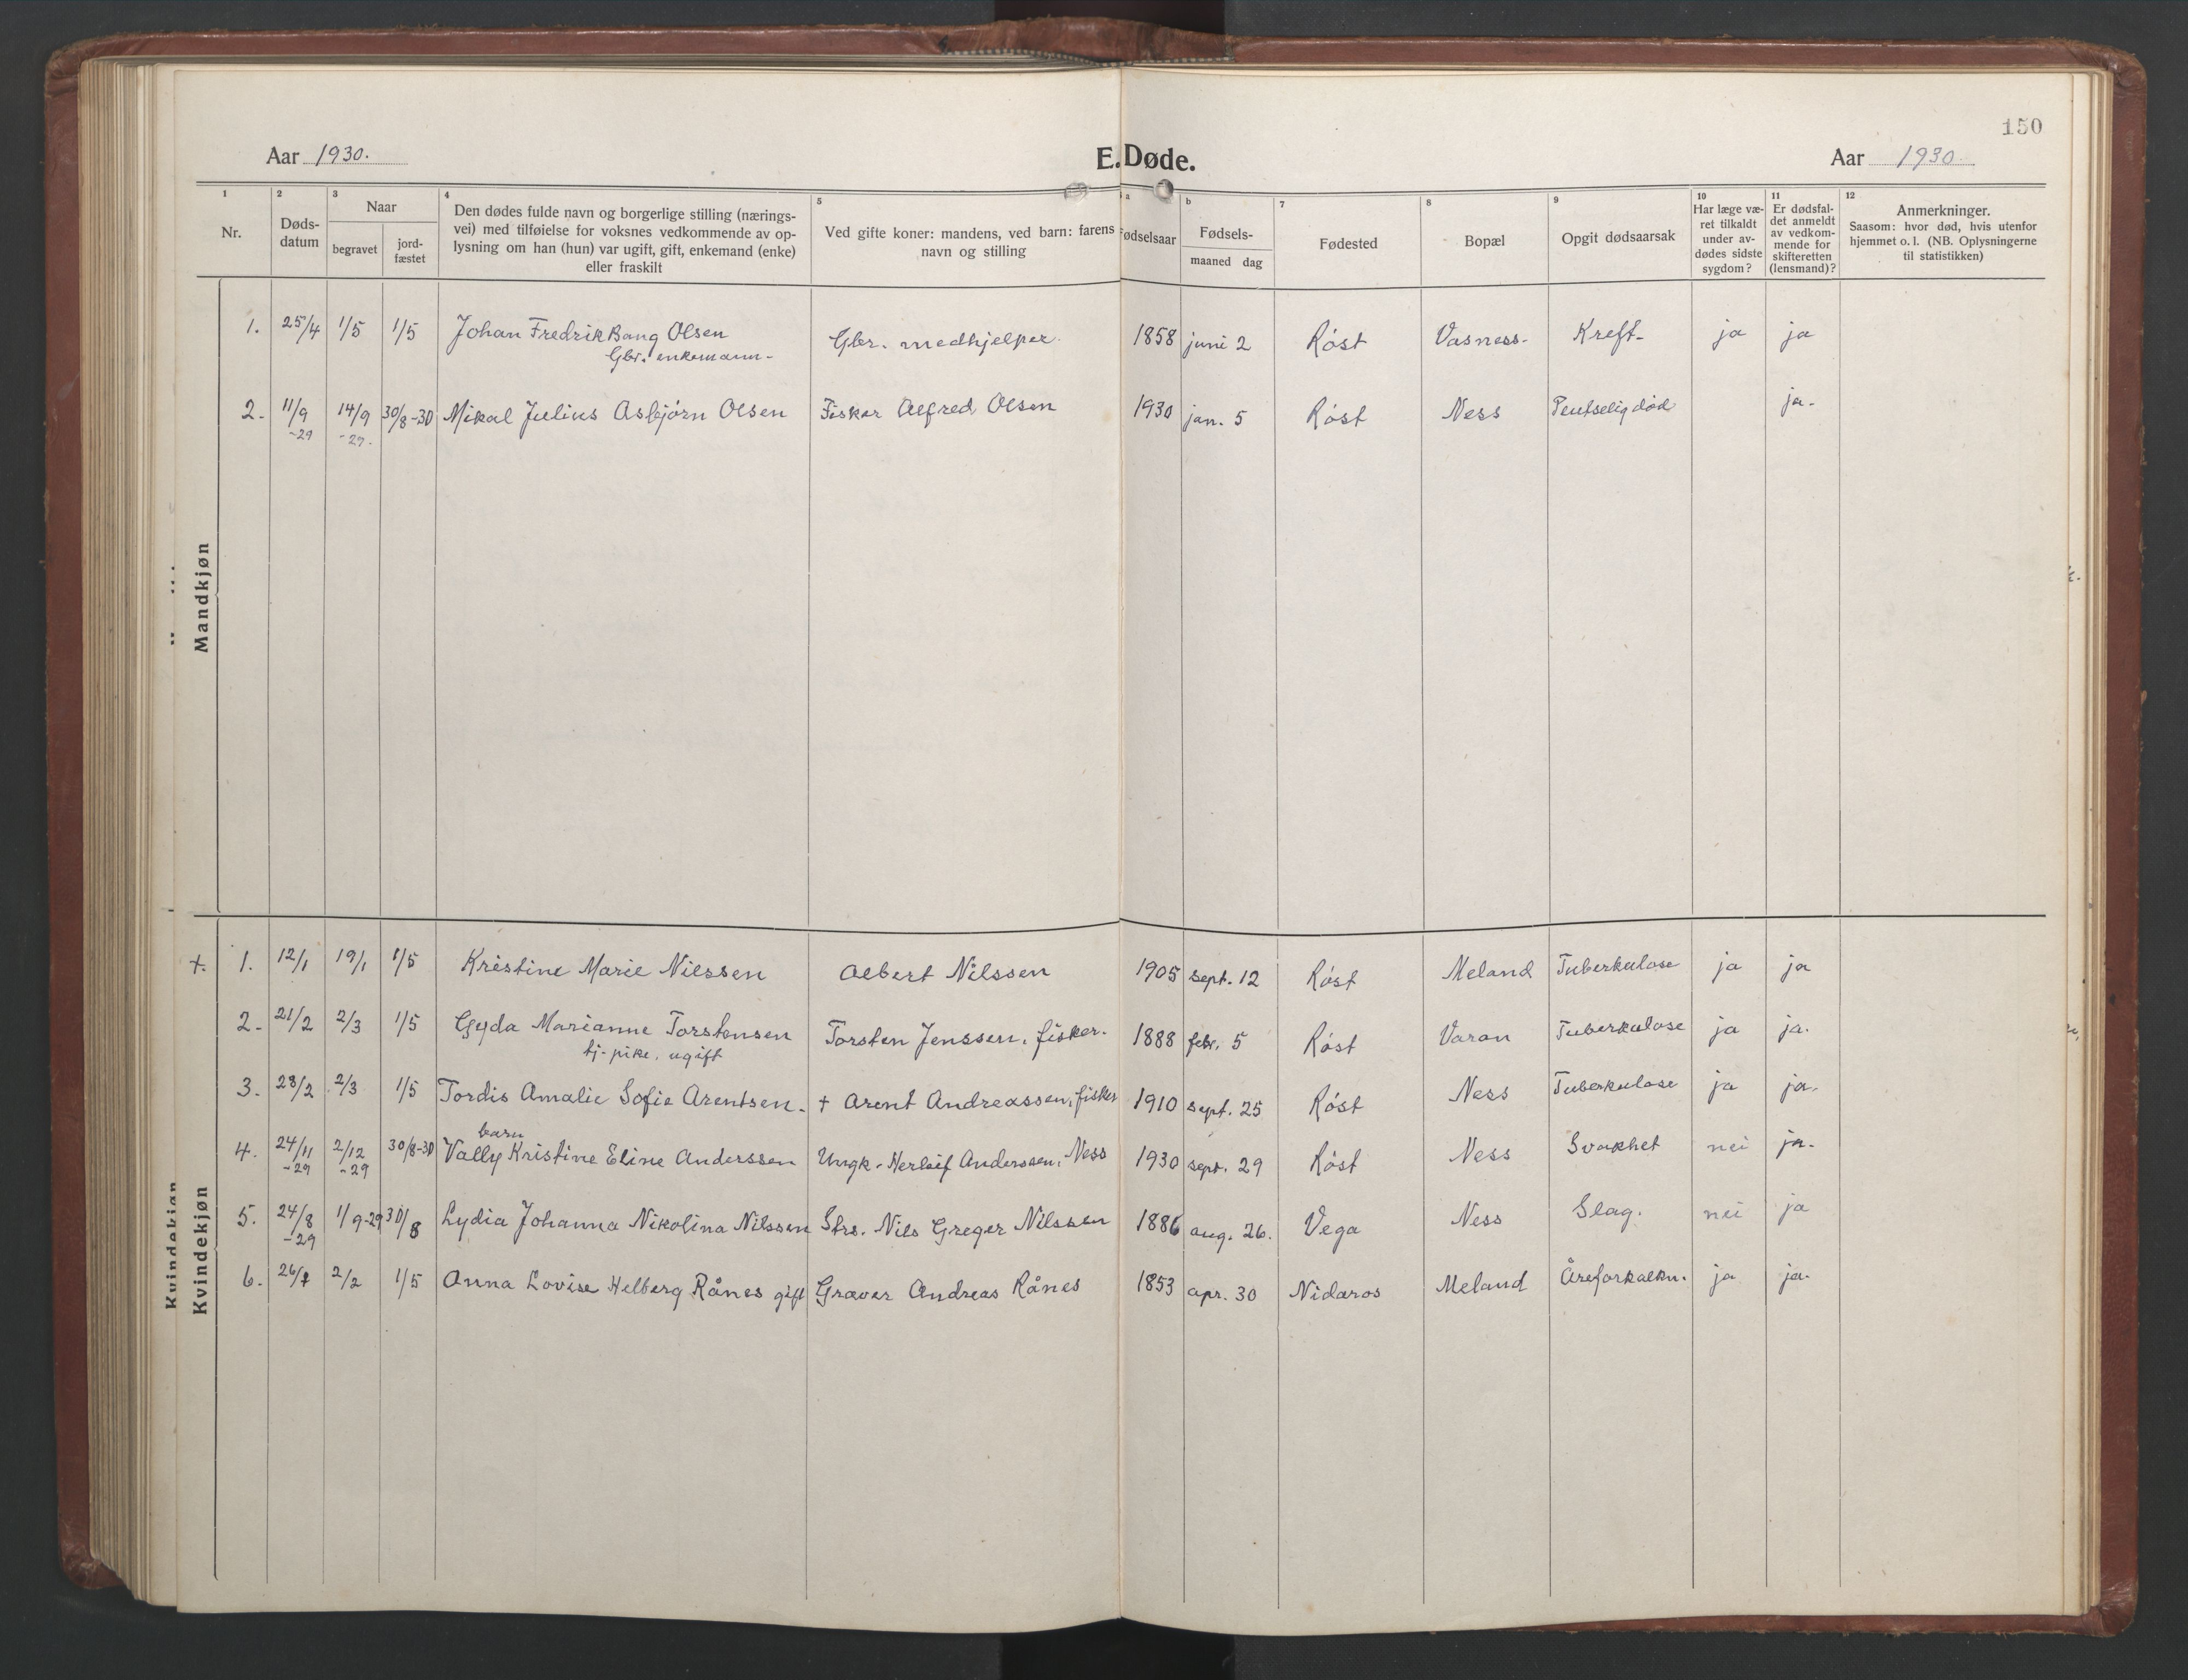 150
Aar 1930.
E. Døde.
Aar 1930.
1 2 3 4 5 a b 7 8 9 10 11 12
Nr.
Døds-
datum
Naar
begravet
jord-
fæstet
Den dødes fulde navn og borgerlige stilling (nærings-
vei) med tilføielse for voksnes vedkommende av op-
lysning om han (hun) var ugift, gift, enkemand (enke)
eller fraskilt
Ved gifte koner: mandens, ved barn: farens
navn og stilling
Fødselsaar
Fødsels-
maaned dag
Fødested
Bopæl
Opgit dødsaarsak
Har læge væ-
ret tilkaldt
under av-
dødes sidste
sygdom?
Er dødsfal-
det anmeldt
av vedkom-
mende for
skifteretten
(lensmand)?
Anmerkninger.
Saasom: hvor død, hvis utenfor
hjemmet o. l. (NB. Oplysningerne
til statistikken)
Mandkjøn
1. 25/4 1/5 1/5 Johan Fredrik Bang Olsen Gbr. medhjelper. 1858 juni 2 Røst Vasness- Kreft- ja ja
Gbr. enkemann-
2. 11/9 14/9 30/8-30 Mikal Julius Asbjørn Olsen Fisker Alfred Olsen 1930 jan. 5 Røst Ness ja.
-29 -29.
Kvindekjøn
Kvindekjøn
+. 1. 12/1 19/1 1/5 Kristine Marie Nilssen Albert Nilssen 1905 sept. 12 Røst Meland Tuberkulose ja ja
2. 21/2 2/3 1/5 Gyda Marianne Torstensen Torsten Jenssen, fisker. 1888 febr. 5 Røst Varan Tuberkulose ja ja.
tj. pike, ugift
3. 23/2 2/3 1/5 Tordis Amalie Sofie Arentsen. + Arent Andreassen, fisker 1910 sept. 25 Røst Ness Tuberkulose ja ja.
barn
4. 24/11 2/12 30/8-30 Vally Kristine Eline Anderssen Ungk. Herleif Anderssen, Ness 1930 sept. 29 Røst Ness Svakhet nei ja.
-29 -29
5. 24/8 1/9-29 30/8 Lydia Johanna Nikolina Nilssen Strs. Nils Greger Nilssen 1886 aug. 26. Vega Ness Slag. nei ja
-29
6. 2/2 1/5 Anna Lovise Helberg Rånes gift Graver Andreas Rånes 1853 apr. 30 Nidaros Meland Åreforkalkn. ja ja.